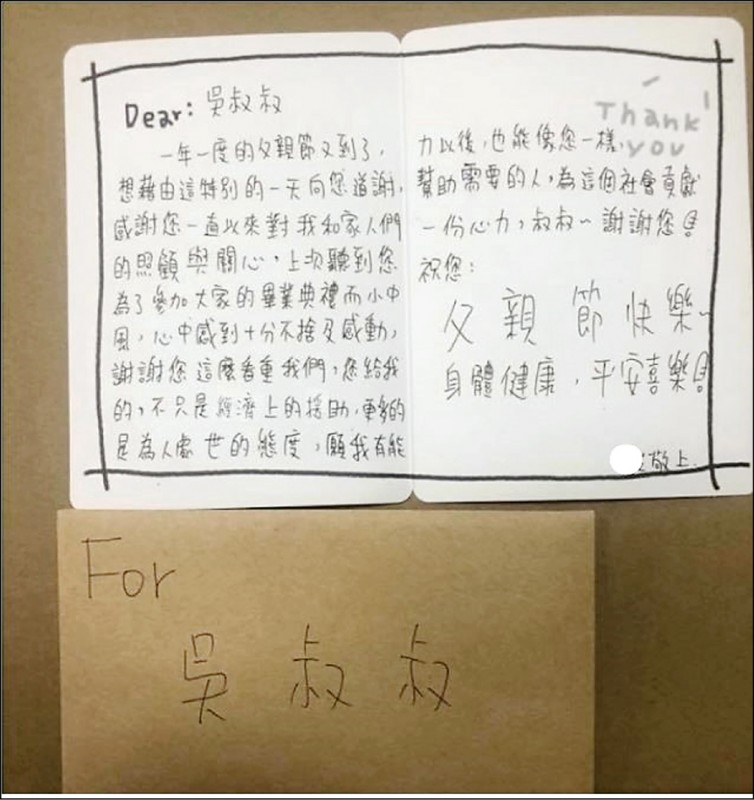 Dear: 吳叔叔
一年一度的父親節又到了,
想藉由這特別的一天向您道謝,
感謝您一直以來對我和家人們
的照顧與關心,上次聽到您
為了參加大家的畢業典禮而小中
風,心中感到十分不捨及感動,
謝謝您這麼看重我們,您給我
的,不只是經濟上的援助,更多的
是為人處世的態度,願我有能
Thank
you
力以後,也能像您一樣,
幫助需要的人,為這個社會貢獻
一份心力,叔叔~謝謝您!
祝您:
父親節快樂~
身體健康,平安喜樂!
敬上.
For
吳叔叔